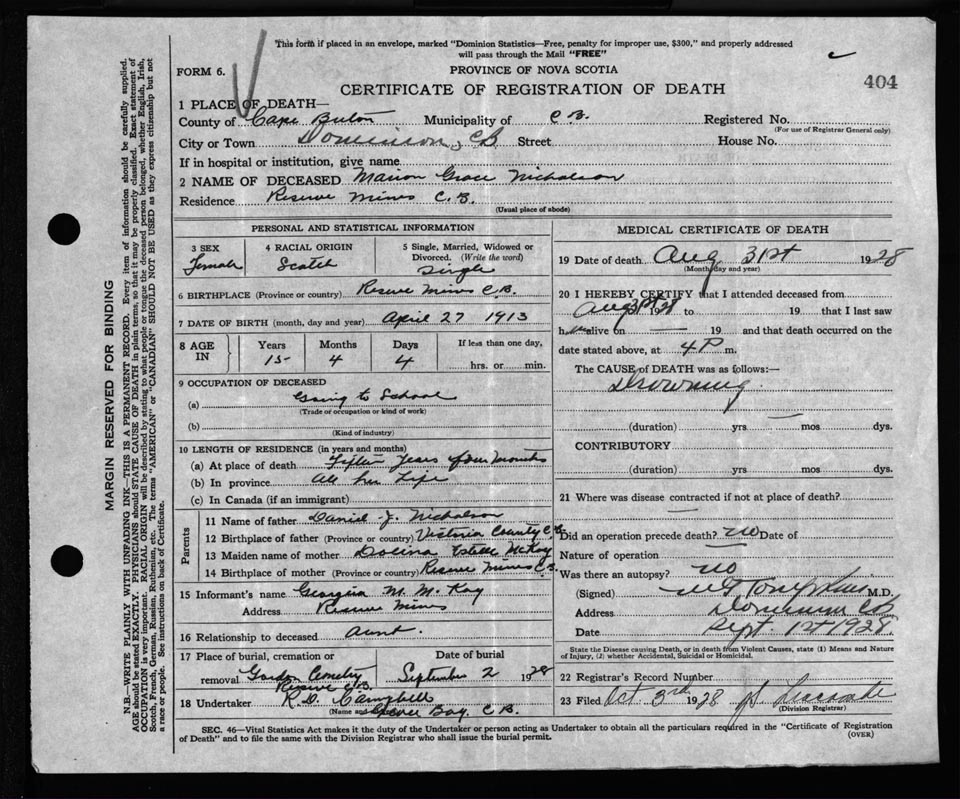 This form if placed in an envelope, marked "Dominion Statistics—Free, penalty for improper use, $300," and properly addressed
will pass through the Mail "FREE"
FORM 6.
PROVINCE OF NOVA SCOTIA
404
CERTIFICATE OF REGISTRATION OF DEATH
1 PLACE OF DEATH—
County of Cape Breton Municipality of C B. Registered No.
(For use of Registrar General only)
City or Town Dominion, CB Street House No.
If in hospital or institution, give name
2 NAME OF DECEASED Marion Grace Nicholson
Residence Reserve Mines C. B.
(Usual place of abode)
PERSONAL AND STATISTICAL INFORMATION
3 SEX 4 RACIAL ORIGIN 5 Single, Married, Widowed or
Divorced. (Write the word)
Female Scotch Single
6 BIRTHPLACE (Province or country) Reserve Mines C.B.
7 DATE OF BIRTH (month, day and year) April 27 1913
8 AGE IN Years Months Days If less than one day,
15 4 4 hrs. or min.
9 OCCUPATION OF DECEASED
(a) Going to School
(Trade or occupation or kind of work)
(b)
(Kind of industry)
10 LENGTH OF RESIDENCE (in years and months)
(a) At place of death Fifteen Years four Months
(b) In province All her Life
(c) In Canada (if an immigrant)
Parents
11 Name of father Daniel J. Nicholson
12 Birthplace of father (Province or country) Victoria County C.B.
13 Maiden name of mother Estelle McKay
14 Birthplace of mother (Province or country) Reserve Mines C.B.
15 Informant's name Georgina M. McKay
Address Reserve Mines
16 Relationship to deceased Aunt.
17 Place of burial, cremation or Date of burial
removal Gordon Cemetery September 2 1928
Reserve C.B.
18 Undertaker R.D. Campbell
(Name and
Glace Bay. C.B.
MEDICAL CERTIFICATE OF DEATH
19 Date of death Aug 31st 1928
(Month day and year)
20 I HEREBY CERTIFY that I attended deceased from
Aug 31st 1928 to 19 that I last saw
h alive on — 19 and that death occurred on
date stated above, at 4 P m.
The CAUSE of DEATH was as follows:
Drowning.
(duration) yrs mos dys.
CONTRIBUTORY
(duration) yrs mos dys.
21 Where was disease contracted if not at place of death?
Did an operation precede death? No Date of
Nature of operation
Was there an autopsy? No
(Signed) M.D.
Address Dominion CB
Date Sept. 1st 1928.
State the Disease causing Death, or in death from Violent Causes, state (1) Means and Nature
of Injury, (2) whether Accidental, Suicidal or Homicidal.
22 Registrar's Record Number
23 Filed Oct 3rd 1928
(Division Registrar)
SEC. 46—Vital Statistics Act makes it the duty of the Undertaker or person acting as Undertaker to obtain all the particulars required in the "Certificate of Registration
of Death" and to file the same with the Division Registrar who shall issue the burial permit.
(OVER)
MARGIN RESERVED FOR BINDING
N.B.—WRITE PLAINLY WITH UNFADING INK—THIS IS A PERMANENT RECORD. Every item of information should be carefully supplied.
AGE should be stated EXACTLY. PHYSICIANS should STATE CAUSE OF DEATH in plain terms, so that it may be properly classified. Exact statement of
OCCUPATION is very important. RACIAL ORIGIN will be described by stating to what people or tongue the deceased person belonged, whether English, Irish,
Scotch, French, German, Russian, Ruthenian, etc. The terms "AMERICAN" or "CANADIAN" SHOULD NOT BE USED as they express citizenship but not
a race or people. See instructions on back of Certificate.